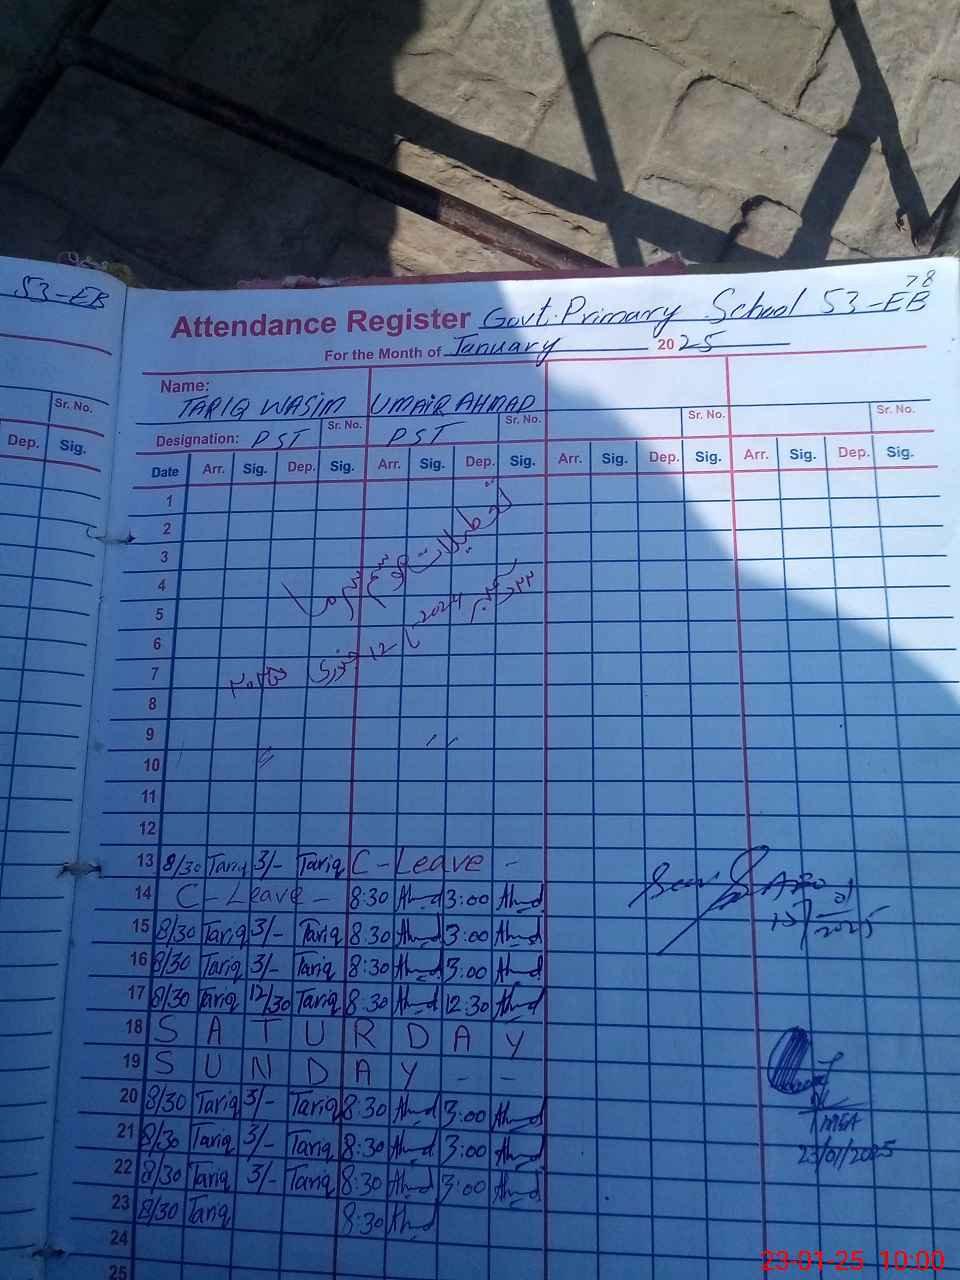 53-EB
Sr. No.
Dep. Sig.
78
Attendance Register Govt. Primary School 53-EB
For the Month of January 2025
Name:
TARIQ WASIM UMAIR AHMAD
Sr. No. Sr. No. Sr. No. Sr. No.
Designation: PST PST
Date Arr. Sig. Dep. Sig. Arr. Sig. Dep. Sig. Arr. Sig. Dep. Sig. Arr. Sig. Dep. Sig.
1
2
3
4
5
6
7
8
9
10
11
12
تعطیلات موسم سرما
2024
12 جنوری
13 8/30 Tariq 3/- Tariq C-Leave -
14 C-Leave - 8:30 Ahmd 3:00 Ahmd
15 8/30 Tariq 3/- Tariq 8:30 Ahmd 3:00 Ahmd
16 8/30 Tariq 3/- Tariq 8:30 Ahmd 3:00 Ahmd
17 8/30 Tariq 12/30 Tariq 8:30 Ahmd 12:30 Ahmd
18 S A T U R D A Y
19 S U N D A Y - -
20 8/30 Tariq 3/- Tariq 8:30 Ahmd 3:00 Ahmd
21 8/30 Tariq 3/- Tariq 8:30 Ahmd 3:00 Ahmd
22 8/30 Tariq 3/- Tariq 8:30 Ahmd 3:00 Ahmd
23 8/30 Tariq 8:30 Ahmd
24
25
15/01/2025
MEA
23/01/2025
23-01-25 10:00